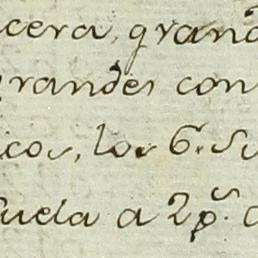 cera, grand
grandes con
icos, los 6. Su
uela a 2 p.s c